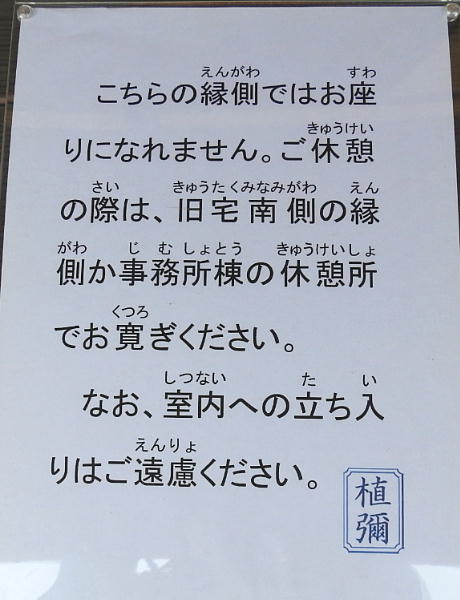 えんがわ すわ
こちらの縁側ではお座
きゅうけい
りになれません。ご休憩
さい きゅうたくみなみがわ えん
の際は、旧宅南側の縁
がわ じむしょとう きゅうけいしょ
側か事務所棟の休憩所
くつろ
でお寛ぎください。
しつない た い
なお、室内への立ち入
えんりょ
りはご遠慮ください。
植彌